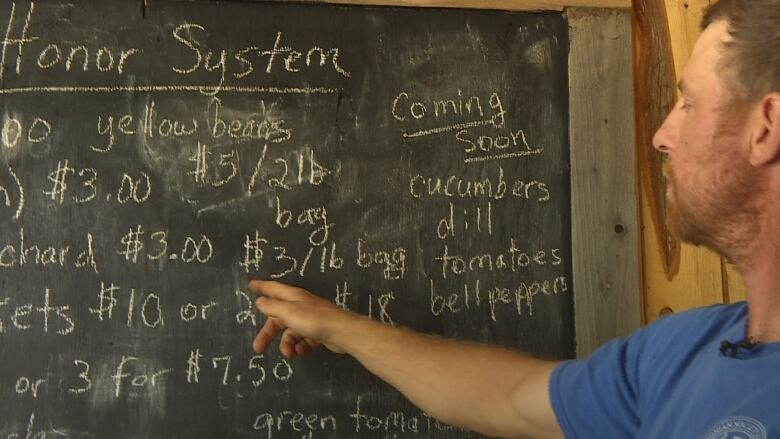 Honor System
00 yellow beans
$5/2lb
bag
$3.00
chard $3.00 $3/lb bag
ets $10 or 2 $18
or 3 for $7.50
green tomat
Coming
Soon
cucumbers
dill
tomatoes
bell peppers